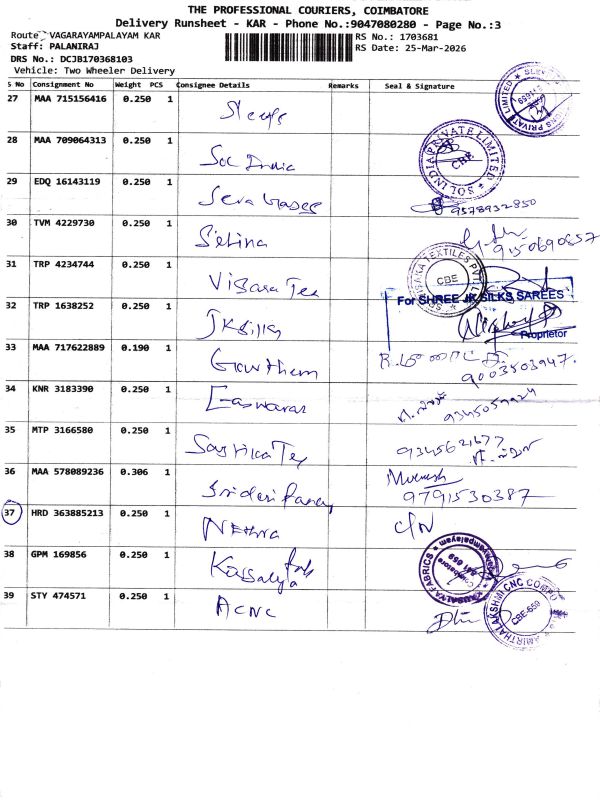 THE PROFESSIONAL COURIERS, COIMBATORE
Delivery Runsheet - KAR - Phone No.:9047080280 - Page No.:3
Route : VAGARAYAMPALAYAM KAR
RS No.: 1703681
Staff: PALANIRAJ
RS Date: 25-Mar-2026
DRS No.: DCJB170368103
Vehicle: Two Wheeler Delivery
S No Consignment No Weight PCS Consignee Details Remarks Seal & Signature
27 MAA 715156416 0.250 1
28 MAA 709064313 0.250 1 Sol India
SOL INDIA PRIVATE LIMITED CBE
29 EDQ 16143119 0.250 1
9578932850
30 TVM 4229730 0.250 1 Selina
9150690857
31 TRP 4234744 0.250 1 Visara Tex
TEXTILES PVT. CBE
32 TRP 1638252 0.250 1 JK Silks
For SHREE JK SILKS SAREES
Proprietor
33 MAA 717622889 0.190 1 Gowtham
9003503947
34 KNR 3183390 0.250 1 Easwaran
9345059424
35 MTP 3166580 0.250 1
9345621677
36 MAA 578089236 0.306 1
9791530387
37 HRD 363885213 0.250 1 Nethra C/N
38 GPM 169856 0.250 1 Kausalya Fab
KAUSALYA FABRICS Coimbatore 641 659
39 STY 474571 0.250 1 ACNC
AMIRTHALAKSHMI CNC COMPO CBE-659